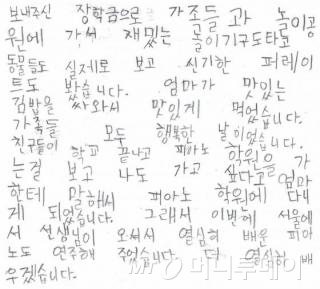 보내주신 장학금으로 가족들과 놀이공
원에 가서 재밌는 놀이기구도타고
동물들도 실제로 보고 신기한 퍼레이
드도 봤습니다. 엄마가 맛있는
김밥을 싸와서 맛있게 먹었습니다.
가족들 모두 행복한 날이었습니다.
친구들이 학교 끝나고 피아노 학원을 가
는걸 보고 나도 가고 싶다고 엄마
한테 말해서 피아노 학원에 다니
게 되었습니다. 그래서 이번에 서울에
서 선생님이 오셔서 열심히 배운 피아
노도 연주해 주었습니다. 더 열심히 배
우겠습니다.
머니투데이